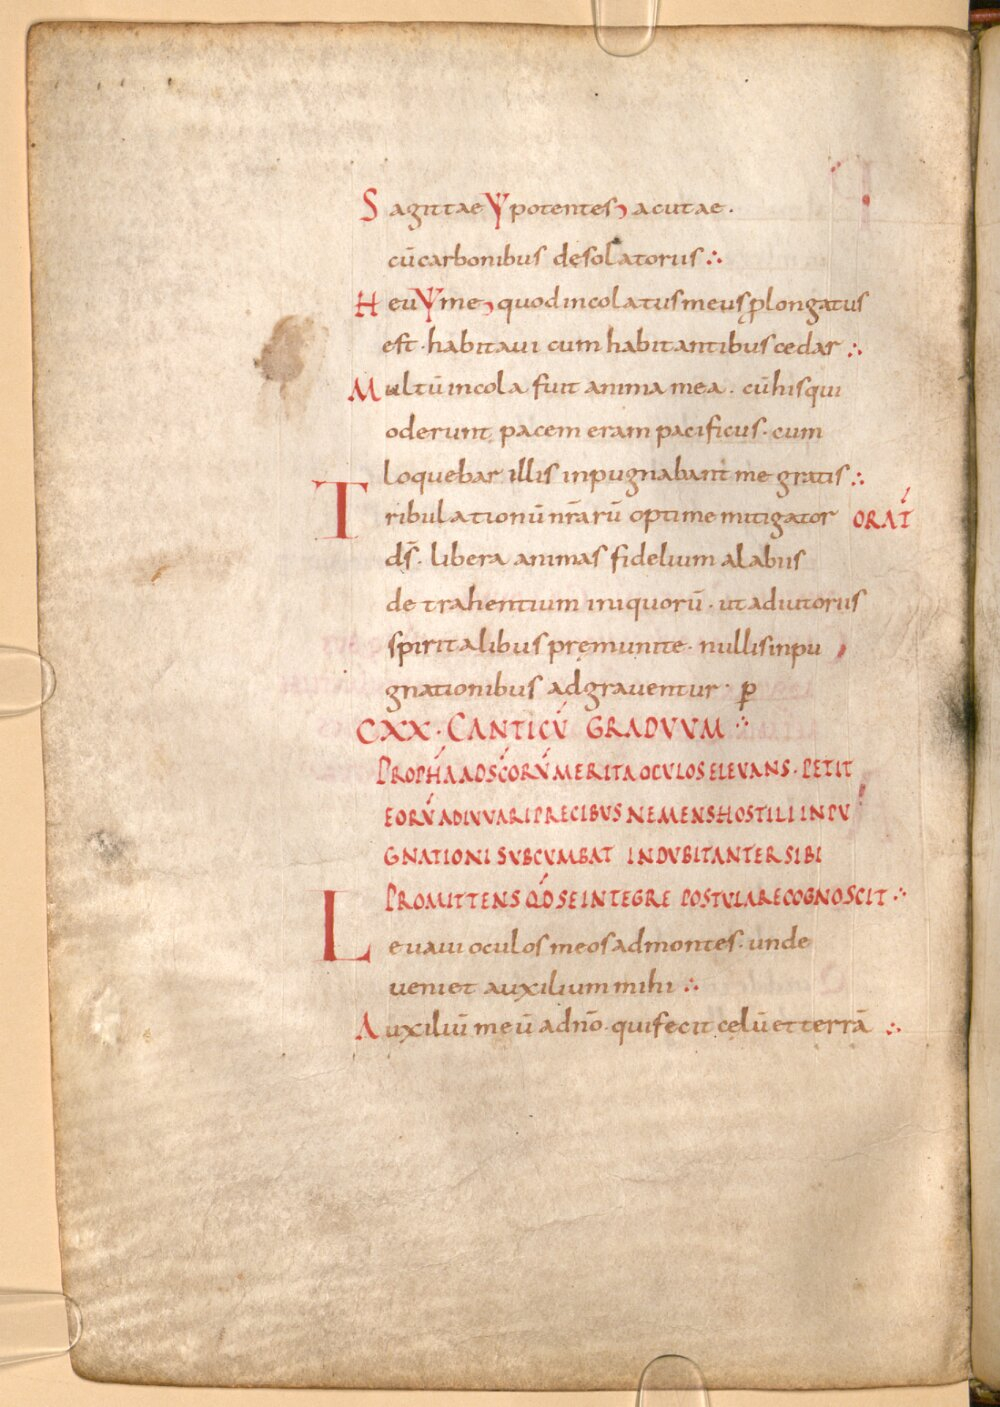 Sagittae Ψ potentes acutae.
cū carbonibus desolatoriis ∴
Heu Ψ me quod incolatus meus ꝓlongatus
est · habitavi cum habitantibus cedar ∴
Multū incola fuit anima mea · cū his qui
oderunt pacem eram pacificus · cum
loquebar illis inpugnabant me gratis ∴
Tribulationū nr̄arū optime mitigator ORAT̄
ds̄ · libera animas fidelium a labiis
detrahentium iniquorū · ut adiutoriis
spiritalibus pręmunite · nullis inpu
gnationibus adgraventur · ꝑ
CXX · CANTICŪ GRADVVM ∴
PROPHA AD SCORV MERITA OCULOS ELEVANS · PETIT
EORV ADIVVARI PRECIBVS NE MENS HOSTILI INPV
GNATIONI SVBCVMBAT INDVBITANTER SIBI
PROMITTENS QD SE INTEGRE POSTVLARE COGNOSCIT ∴
Levavi oculos meos ad montes · unde
veniet auxilium mihi ∴
Auxiliū meū a dn̄o · qui fecit celū et terrā ∴